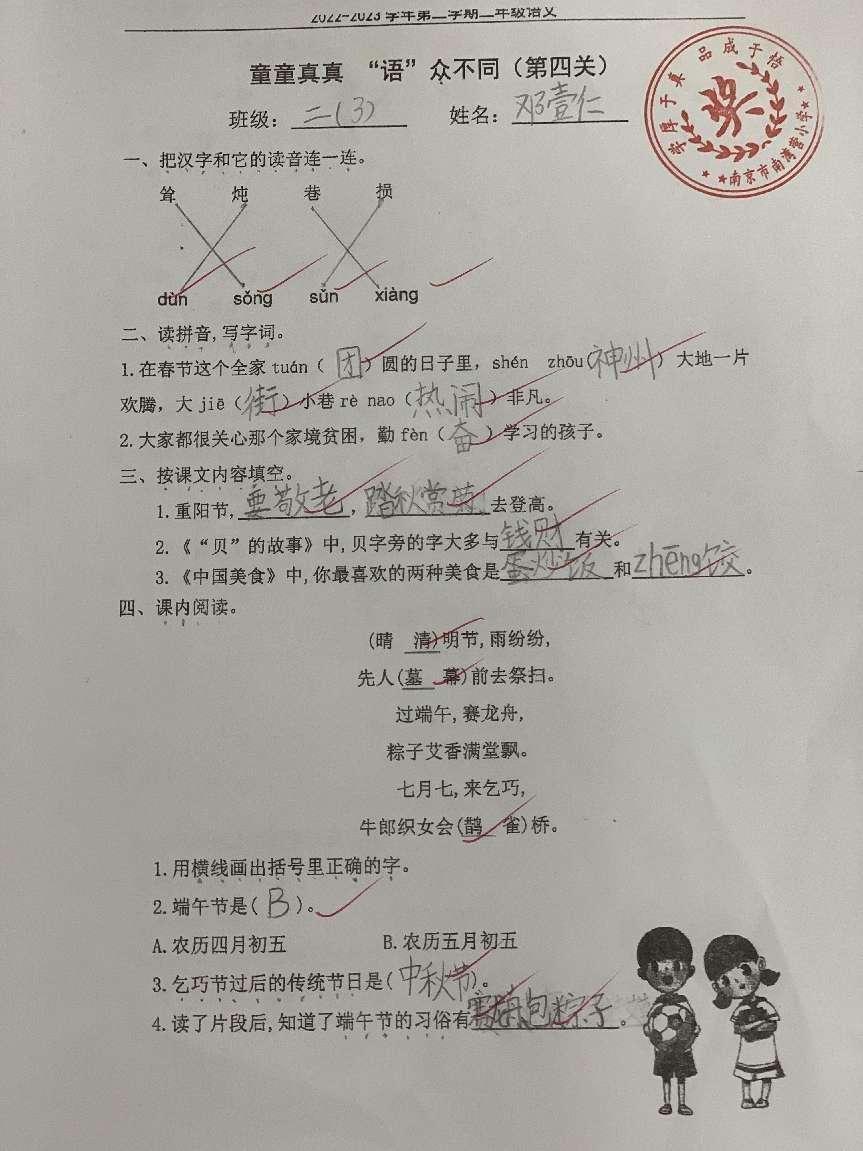 2022-2023 学年第二学期二年级语文
童童真真 “语”众不同（第四关）
班级：二（3） 姓名：邓壹仁
学厚于真 品成于悟
南京市南湾营小学
一、把汉字和它的读音连一连。
耸 炖 巷 损
dùn sǒng sǔn xiàng
二、读拼音,写字词。
1.在春节这个全家 tuán（团）圆的日子里，shén zhōu(神州）大地一片
欢腾，大 jiē（街）小巷 rè nao（热闹）非凡。
2.大家都很关心那个家境贫困，勤 fèn（奋）学习的孩子。
三、按课文内容填空。
1.重阳节,要敬老，踏秋赏菊去登高。
2.《“贝”的故事》中,贝字旁的字大多与钱财有关。
3.《中国美食》中,你最喜欢的两种美食是蛋炒饭和zhēng饺。
四、课内阅读。
(晴 清)明节,雨纷纷,
先人(墓 幕)前去祭扫。
过端午,赛龙舟,
粽子艾香满堂飘。
七月七,来乞巧,
牛郎织女会(鹊 雀)桥。
1.用横线画出括号里正确的字。
2.端午节是(B)。
A.农历四月初五 B.农历五月初五
3.乞巧节过后的传统节日是(中秋节)。
4.读了片段后,知道了端午节的习俗有赛 包粽子。